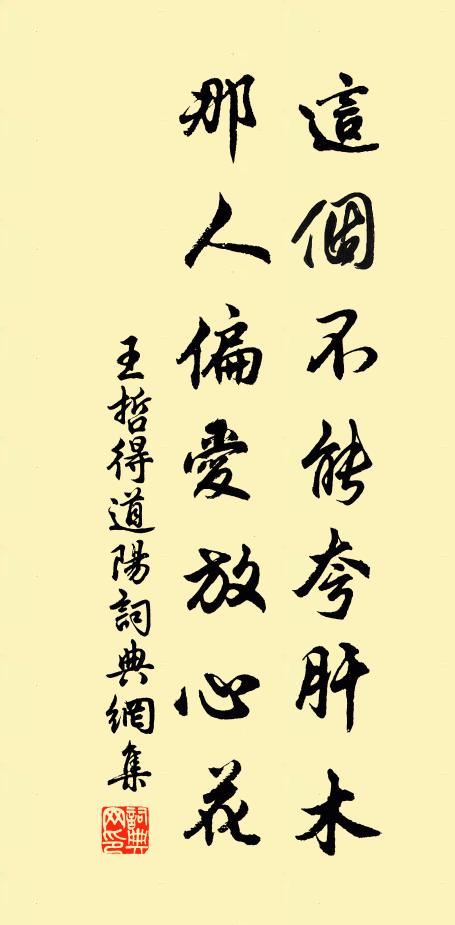 這個不能夸肝木
那人偏愛放心花
王哲得道陽詞典網集
詞典网印